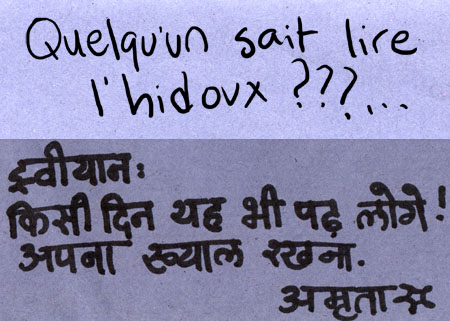 Quelqu'un sait lire
l'hidoux ???...
किसी दिन यह भी पढ़ लोगे!
अपना ख्याल रखना.
अमृता